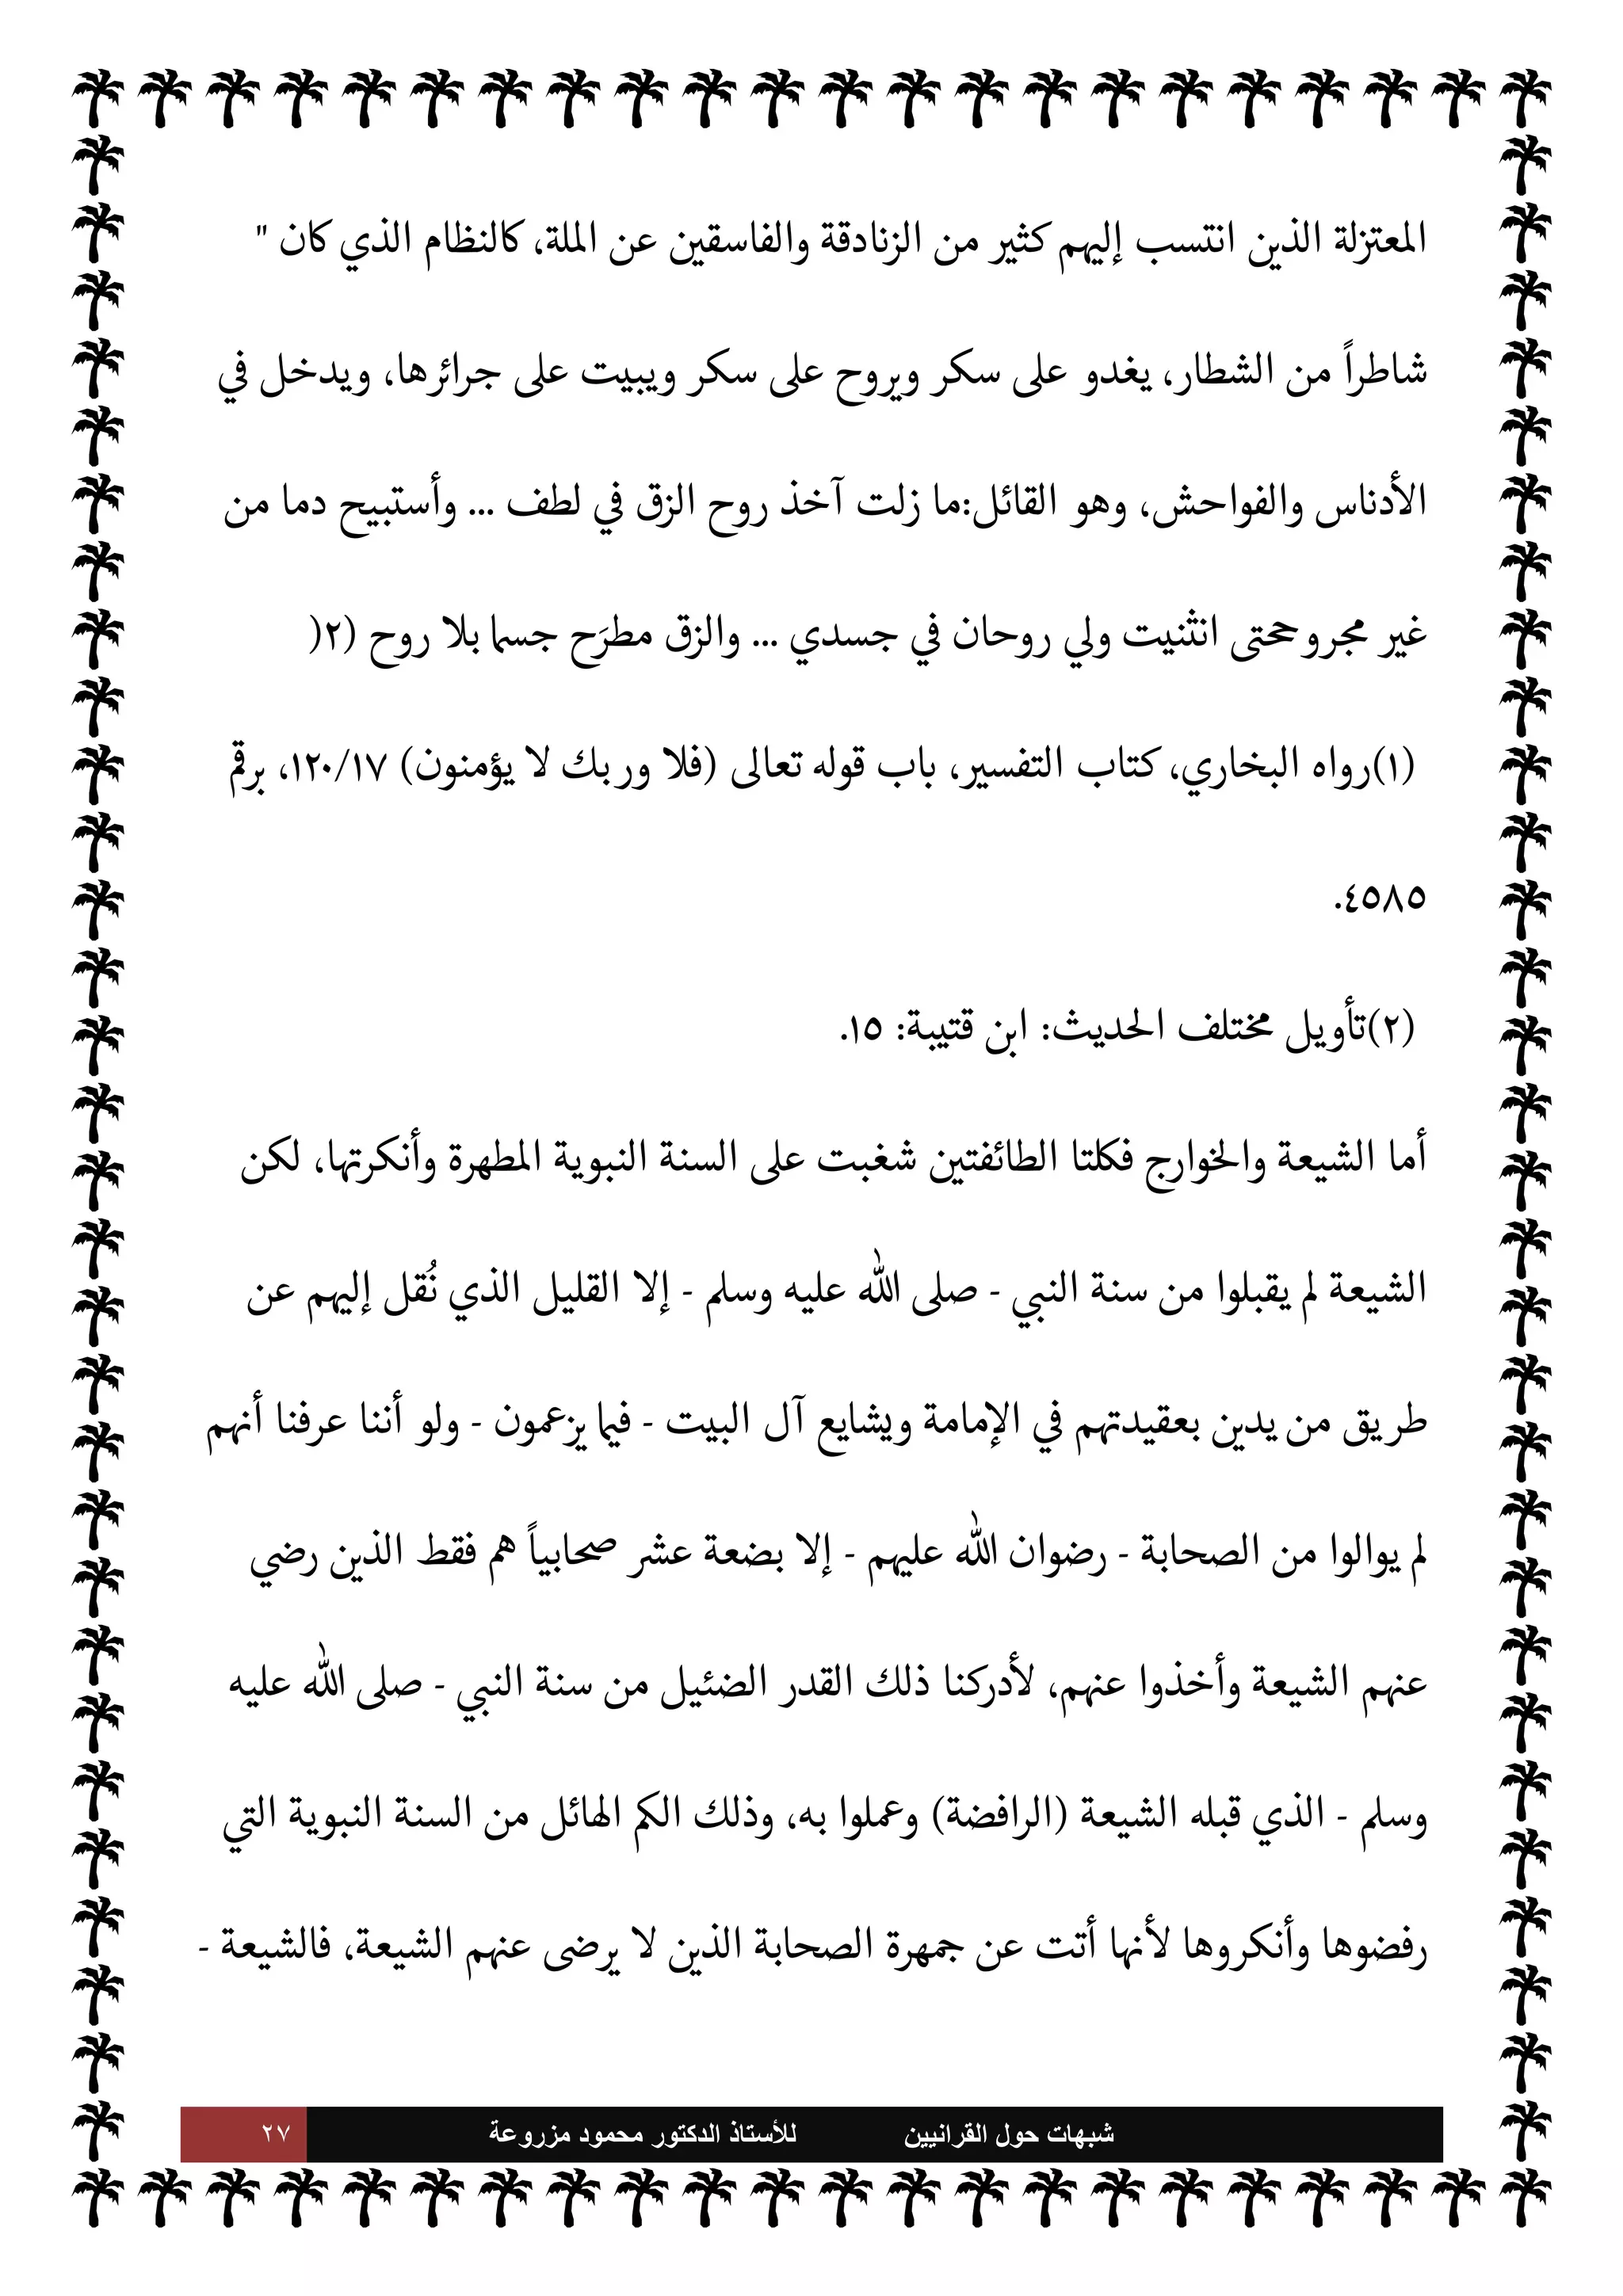 المعتزلة الذين انتسب إليهم كثير من الزنادقة والفاسقين عن الملة، كالنظام الذي كان "
شاطراً من الشطار، يغدو على سكر ويروح على سكر ويبيت على جرائرها، ويدخل في
الأدناس والفواحش، وهو القائل:ما زلت آخذ روح الزق في لطف ... وأستبيح دما من
غير مجروححتى انثنيت ولي روحان في جسدي ... والزق مطرَح جسم بلا روح (٢(
(١)رواه البخاري، كتاب التفسير، باب قوله تعالى (فلا وربك لا يؤمنون) ١٢٠/١٧، برقم
٤٥٨٥.
(٢)تأويل مختلف الحديث: ابن قتيبة: ١٥.
أما الشيعة والخوارج فكلتا الطائفتين شغبت على السنة النبوية المطهرة وأنكرتها، لكن
الشيعة لم يقبلوا من سنة النبي - صلى الله عليه وسلم - إلا القليل الذي نُقل إليهم عن
طريق من يدين بعقيدتهم في الإمامة ويشايع آل البيت - فيما يزعمون - ولو أننا عرفنا أنهم
لم يوالوا من الصحابة - رضوان الله عليهم - إلا بضعة عشر صحابياً هم فقط الذين رضي
عنهم الشيعة وأخذوا عنهم، لأدركنا ذلك القدر الضئيل من سنة النبي - صلى الله عليه
وسلم - الذي قبله الشيعة (الرافضة) وعملوا به، وذلك الكم الهائل من السنة النبوية التي
رفضوها وأنكروها لأنها أتت عن جمهرة الصحابة الذين لا يرضى عنهم الشيعة، فالشيعة -
شبهات حول القرانيين للأستاذ الدكتور محمود مزروعة ٢٧